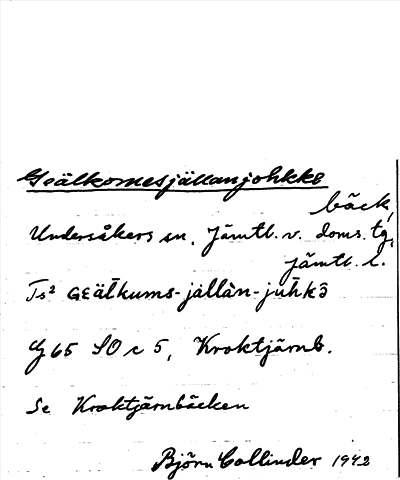 Geälkomesjällanjohkke
bäck,
Undersåkers sn, Jämtl. v. doms. tg,
Jämtl. l.
Ts² GEälkums-jallàn-jùhkə̄
G 65 SO c 5, Kroktjärnb.
Se Kroktjärnbäcken
Björn Collinder 1942